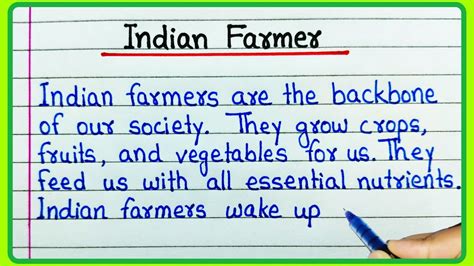 Indian Farmer
Indian farmers are the backbone
of our society. They grow crops,
fruits, and vegetables for us. They
feed us with all essential nutrients.
Indian farmers wake up